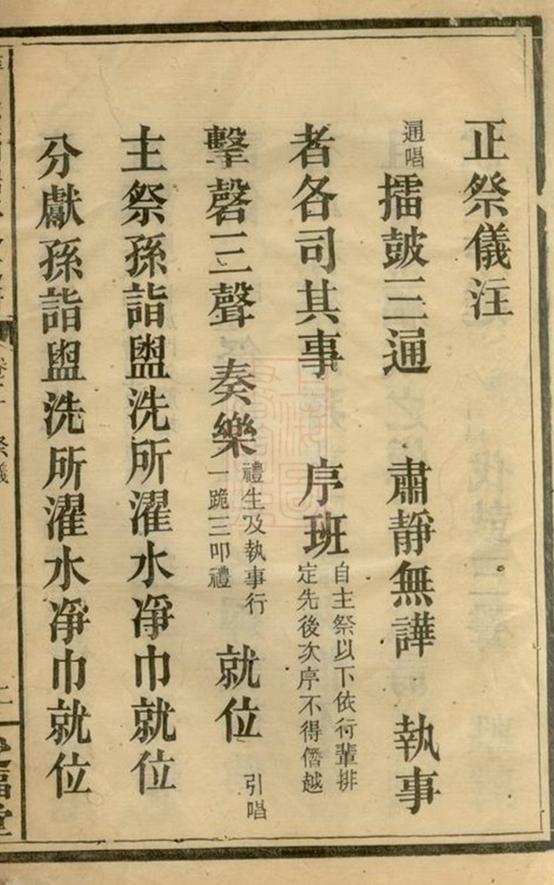 正祭儀注
通唱 擂鼓三通 肅靜無譁 執事
者各司其事 序班 自主祭以下依行輩排定先後次序不得僭越
擊磬三聲 奏樂 禮生及執事行一跪三叩禮 就位 引唱
主祭孫詣盥洗所濯水凈巾就位
分獻孫詣盥洗所濯水凈巾就位